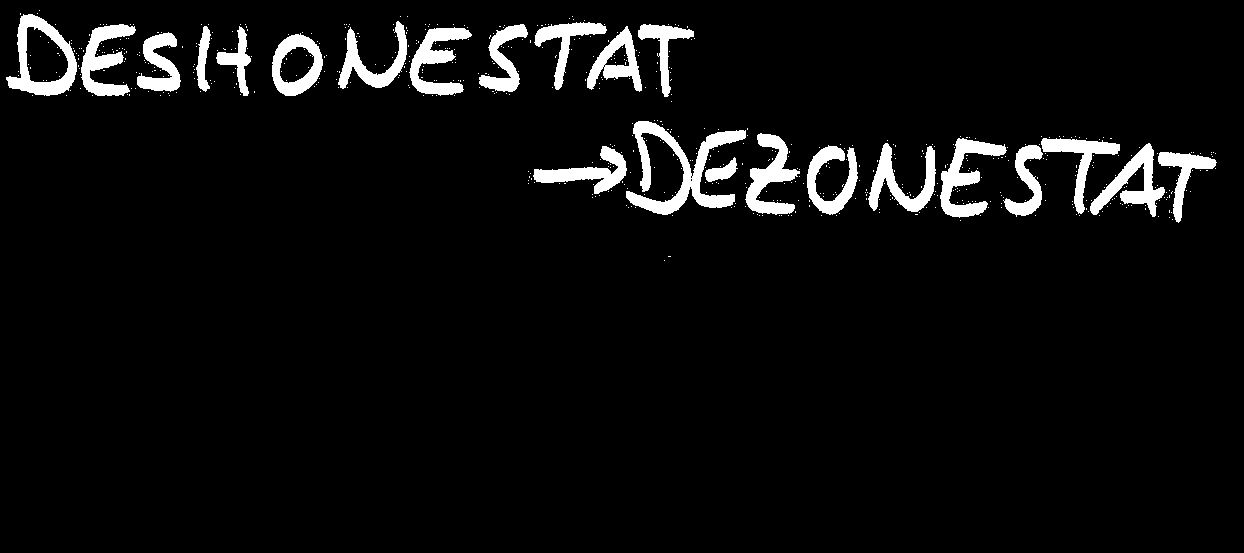 DESHONESTAT
→DEZONESTAT